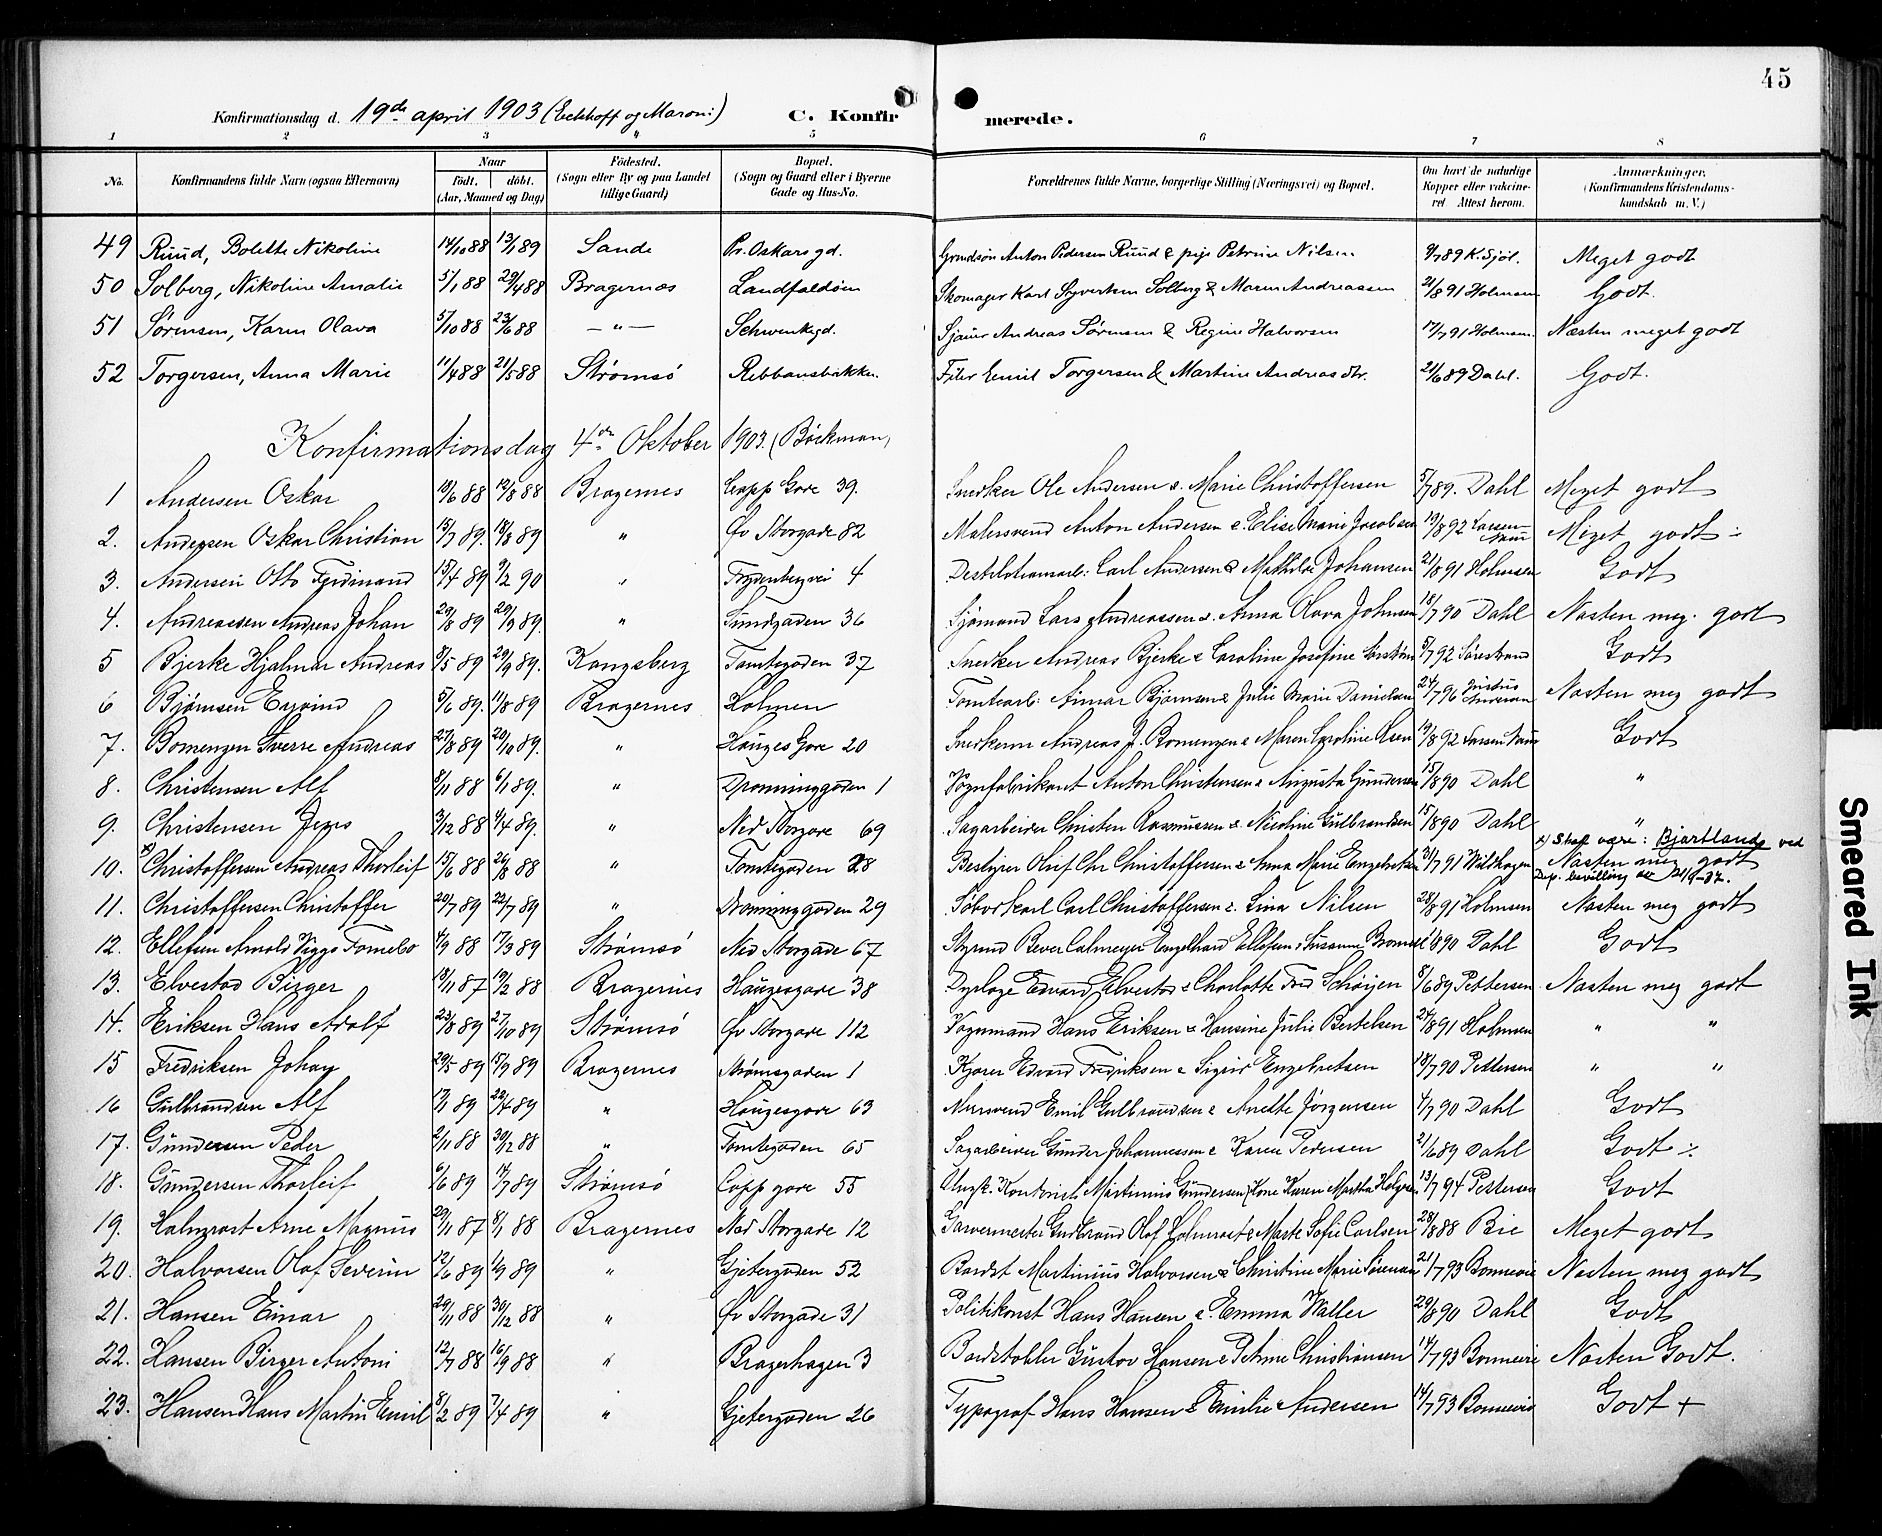 45
Konfirmationsdag d. 19de april 1903 (Eckhoff og Maroni) C. Konfirmerede.
1 2 3 4 5 6 7 8
No. Konfirmandens fulde Navn (ogsaa Efternavn) Naar Födt. döbt. (Aar, Maaned og Dag) Födested. (Sogn eller By og paa Landet tillige Gaard) Bopæl. (Sogn og Gaard eller i Byerne Gade og Hus-No. Forældrenes fulde Navne, borgerlige Stilling (Næringsvei) og Bopæl. Om havt de naturlige Kopper eller vakcineret Attest herom. Anmærkninger, (Konfirmandens Kristendomskundskab m. V.)
49 Ruud, Bolette Nikoline 14/10 88 13/1 89 Sande Pr. Oskars gd. Anton Pedersen Ruud & Petrine Nilsen 9/7 89 K. Sjöl. Meget godt
50 Solberg, Nikoline Amalie 5/1 88 29/4 88 Bragernæs Landfaldöen Skomager Karl Syvertsen Solberg & Maren Andreassen 21/8 91 Holmsen Godt.
51 Sørensen, Karen Olava 5/10 88 23/6 88 — " — Schwenkegd. Sjauer Andreas Sørensen & Regine Halvorsen 17/7 91 Holmsen. Næsten meget godt
52 Torgersen, Anna Marie 11/4 88 21/5 88 Strømsö Ribbansbakken. Filer Emil Torgersen & Martine Andreasdtr. 21/6 89 Dahl. Godt.
Konfirmationsdag 4de Oktober 1903. (Böckman)
1 Andersen Oskar 10/6 88 12/8 88 Bragernes Capp. Gade 39. Snedker Ole Andersen o. Marie Christoffersen 5/7 89. Dahl Meget godt
2. Andersen Oskar Christian 15/7 89. 18/8 89 " Øv Storgade 82 Malersvend Anton Andersen o. Elise Marie Jacobsen 19/8 92 Larsen Naur Meget godt ÷
3. Andersen Otto Ferdinand 15/4 89 9/2 90 " Frydenbergvei 4 Destilationsarb: Carl Andersen & Mathilde Johansen 21/8 91 Holmsen Godt
4. Andreassen Andreas Johan 29/8 89 29/9 89. " Sundgaden 36 Sjömand Lars Andreassen o. Anna Olava Johnsen 18/7 90 Dahl Næsten meg. godt
5 Bjerke Hjalmar Andreas 8/5 89 29/9 89. Kongsberg Tomtegaden 37 Snedker Andreas Bjerke & Caroline Josefine 5/7 92 Sørestrand Godt
6 Bjørnsen Eyvind 5/6 89. 11/8 89 Bragernes Holmen Tomtearb: Ajmar Bjørnsen & Julie Marie Danielsen 24/7 96 Næsten meg godt
7. Bomengen Sverre Andreas 27/8 89 20/10 89. " Hauges Gade 20 Snedkerm Andreas J. Bomengen & Maren Caroline Olsen 19/8 92 Larsen Naur Godt
8. Christensen Alf 8/11 88 6/1 89. " Dronninggaden 1 Vognfabrikant Anton Christensen & Augusta Gundersen 15/8 90 Dahl "
9. Christensen Jens 3/12 88 4/4 89. " Ned Storgade 69 Sagarbeider Christen Rasmussen & Nicoline Gulbrandsen 15/8 90 Dahl "
x) Skal være: Bjartland ved
10. x) Christoffersen Andreas Thorleif 15/6 88 26/8 88 " Tomtegaden 28 Bestyrer Olaf Chr Christoffersen & Anna Marie Engebretsen 31/7 91 Næsten meg godt
Dep. bevilling av
11. Christoffersen Christoffer 20/7 89 22/7 89 " Dronninggaden 29 Carl Christoffersen & Lina Nilsen 28/8 91 Holmsen Næsten meg godt
12. Ellefsen Arnold Viggo Tomebo 4/9 88 17/3 89 Strømsö Ned Storgade 67 Styrmd Bever Calmeyer Engelhard Ellefsen & Susanne 8 90 Dahl Godt
13. Elvestad Birger 18/11 87 19/2 88 Bragernes Haugesgade 38 Dyrlæge Edvard Elvestad & Charlotte Fred. Schöyen 8/6 89 Pettersen Næsten meg godt
14. Eriksen Hans Adolf 23/8 89 27/10 89 Strømsö Øv Storgade 112 Vognmand Hans Eriksen & Hansine Julie Bertelsen 24/8 91 Holmsen " "
15 Fredriksen Johan 29/5 89 15/9 89 Bragernes Strömsgaden 1 Kjører Edvard Fredriksen & Sigrid Engebretsen 18/7 90 Pettersen " "
16 Gulbrandsen Alf 89 22/4 89 " Haugesgade 63 Mursvend Emil Gulbrandsen & Anette Jörgensen 4/7 90 Dahl Godt
17. Gundersen Peder 2/11 88 30/12 88 " Tomtegaden 65 Sagarbeider Gunder Johannessen & Karen Pedersen 21/6 89 Dahl Godt ÷
18. Gundersen Thorleif 6/6 89 14/7 89 Strømsö Capp gade 55 Kontorist Martinius Gundersen Kone Karen Martha 13/7 94 Pettersen Godt
19. Halmrast Arne Magnus 29/11 87 8/1 88 Bragernes Ned Storgade 12 Garvermester Gudbrand Olaf Halmrast & Marte Sofie Carlsen 28/8 88 Bie Meget godt
20. Halvorsen Olaf Severin 12/6 89 1/9 89 " Gjetergaden 52 Bandst Martinius Halvorsen & Christine Marie Sørensen 21/7 93 Bonnevie Næsten meg godt
21. Hansen Einar 29/11 88 30/12 88 " Øv Storgade 31 Politikonst Hans Hansen & Emma Waller 29/8 90 Dahl Godt
22. Hansen Birger Antoni 12/7 88 16/9 88 " Bragerhagen 3 Gustav Hansen & Petrine Christiansen 14/7 93 Bonnevie Næsten Godt.
23. Hansen Hans Martin Emil 8/2 89 7/4 89 " Gjetergaden 26 Typograf Hans Hansen & Emilie Andersen 14/7 93 Bonnevie Godt +
Smeared Ink